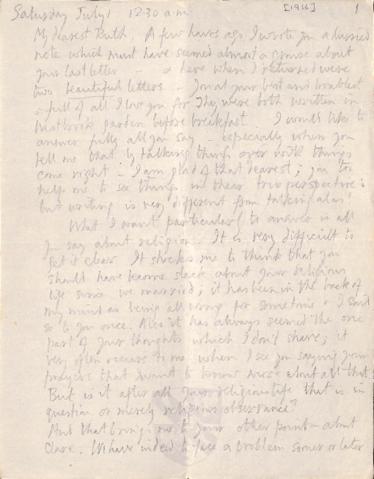 Saturday July 1 12.30 a.m. [1916] 1
My dearest Ruth, A few hours ago I wrote you a hurried
note which must have seemed almost a grouse about
your last letter - & here when I returned were
two beautiful letters - you at your best and truest
& full of all I love you for. They were both written in
Westbrook garden before breakfast. I would like to
answer fully all you say - especially when you
tell me that by talking things over with things
come right - I am glad of that dearest; you too
help me to see things in their true perspective;
but writing is very different from talking alas!
What I want particularly to answer is all
you say about religion. It is very difficult to
get it clear. It shocks me to think that you
should have become slack about your religious
life since we married; it has been in the back of
my mind as being all wrong for sometime & I said
so to you once. Alas it has always seemed the one
part of your thoughts which I don't share; it
very often occurs to me when I see you saying your
prayers that I want to know more about all that.
But is it after all your religious life that is in
question or merely religious observance?
And that brings me to your other point - about
Clare. We have indeed to face a problem sooner or later